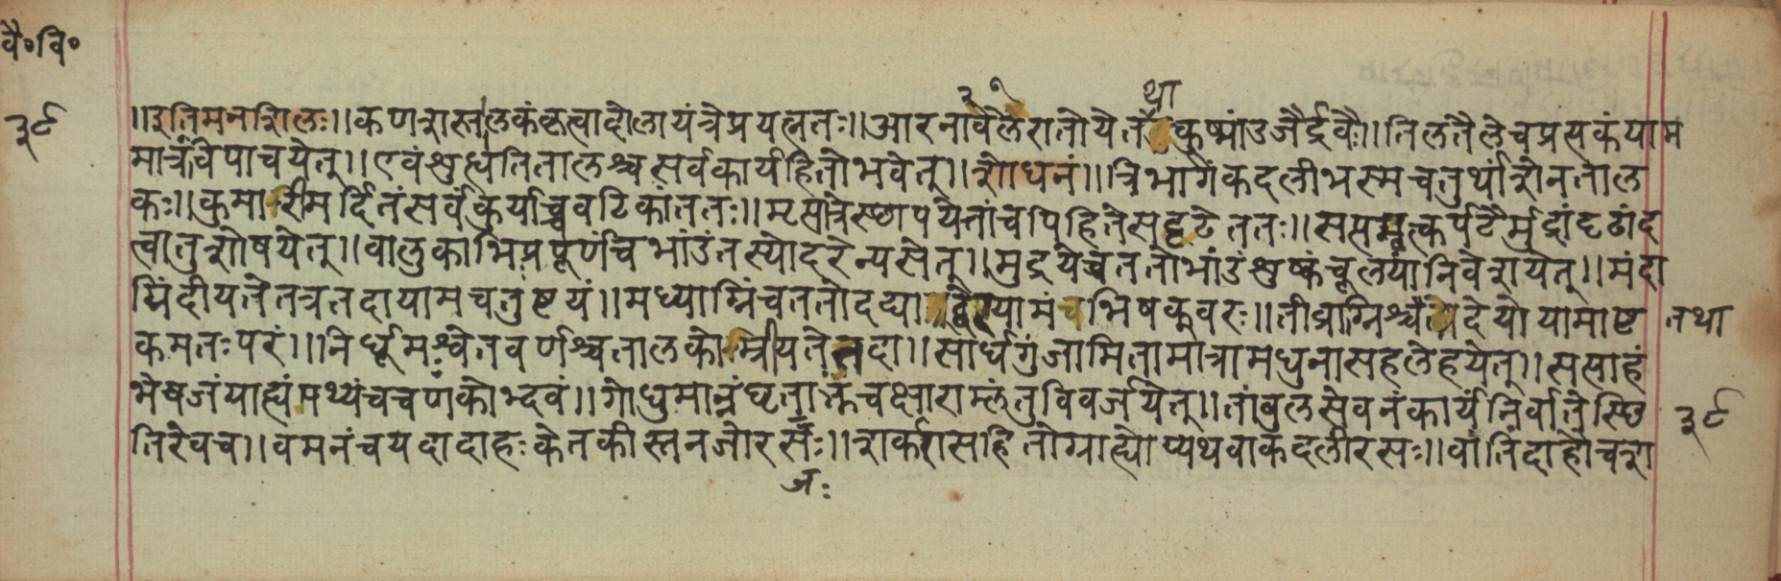 वै॰वि॰
३९
॥इति मनशिलः॥ कणशस्तालकं कृत्वा दोलायंत्रे प्रयत्नतः॥ आरनाले
था
कुष्मांडजैर्द्रवैः॥ तिलतैले च प्रसकं याम
मात्रं विपाचयेत्॥ एवं शुध्यति तालश्च सर्वकार्यहितो भवेत्॥ शोधनं॥ त्रिभागं कदलीभस्म चतुर्थांशेन ताल
कः॥ कुमारीमर्दितं सर्वं कुर्याच्च वटिकां ततः॥ मृत्पात्रे स्छापयेत्तां च पिहिते सद्दृढे ततः॥ सप्तमृत्कर्पटैर्मुद्रां दृढां द
त्वा तु शोषयेत्॥ वालुकाभिप्रपूर्णं च भांडं तस्योदरे न्यसेत्॥ मुद्रयेच्च ततो भांडं शुष्कं चूल्यां निवेशयेत्॥ मंदा
ग्निं दीयते तत्र तदा यामचतुष्टयं॥ मध्याग्निं च ततो दद्या यामं च भिषक्वरः॥ तीव्राग्निश्च प्रदेयो यामाष्ट तथा
कमतः परं॥ निर्धूमश्वेतवर्णश्च तालको म्रियते तदा॥ सार्धगुंजामिता मात्रा मधुना सह लेहयेत्॥ सप्ताहं
भेषजं याह्यं पथ्यं च चणकोभ्दवं॥ गोधुमान्नं घृताक्तं च क्षाराम्लं तु विवर्जयेत्॥ तांबुलसेवनं कार्यं निर्वाते स्छि
३९
तिरेव च॥ वमनं च यदा दाहः केतकीस्तनजो रसः॥ शर्करासहितो ग्राह्योप्यथवा कदलीरसः॥ वांतिदाहौ च शा
जः